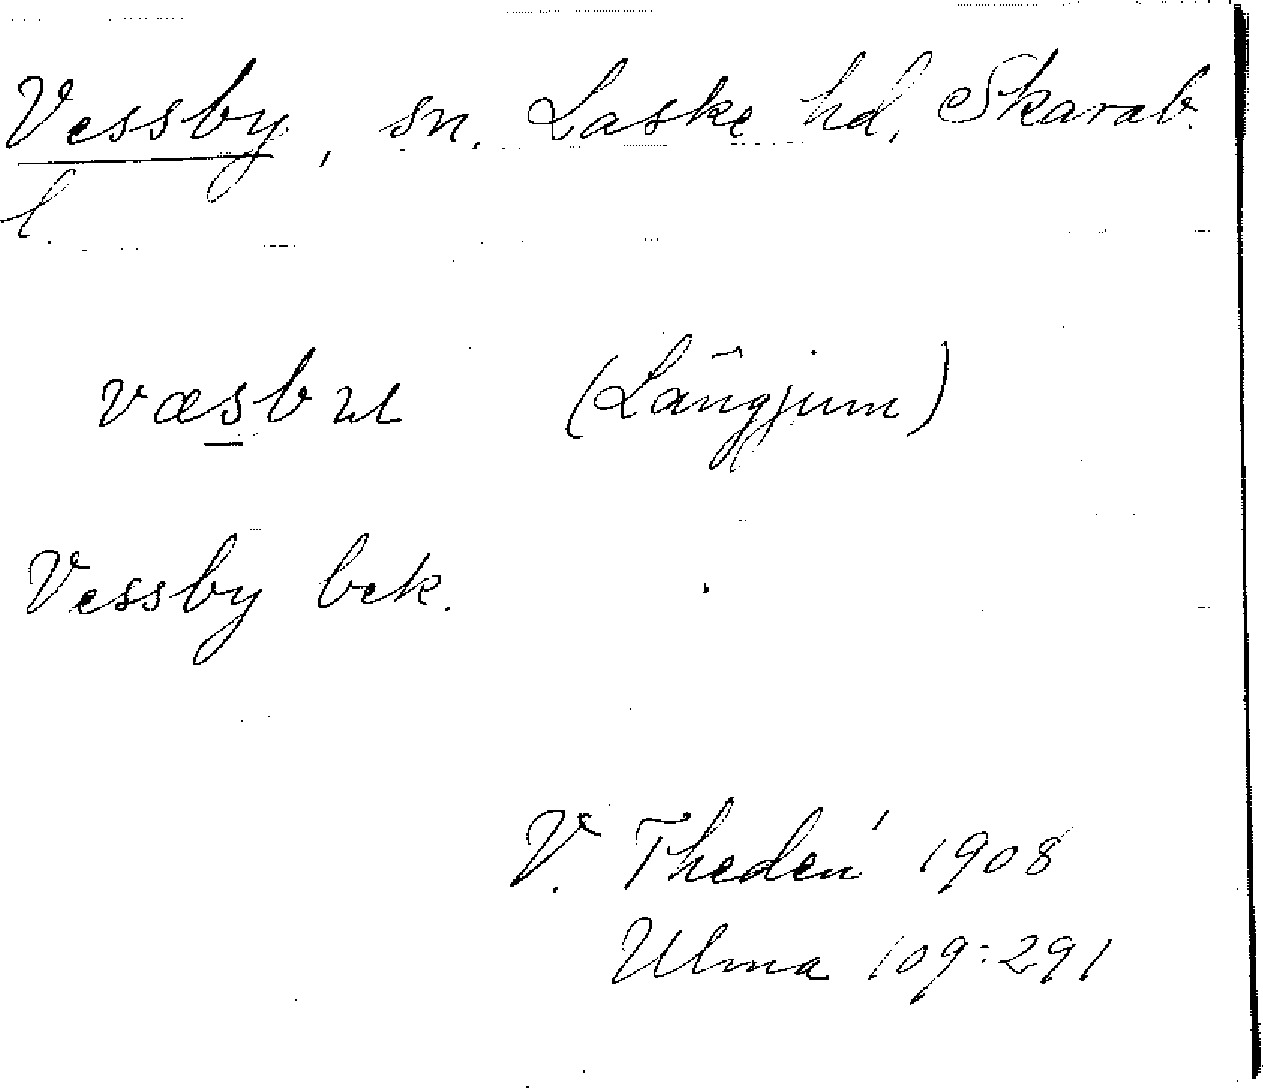 Vessby, sn. Laske hd, Skarab.
l.
væsbʉ (Långjum)
Vessby bek.
V. Thedén 1908
Ulma 109:291